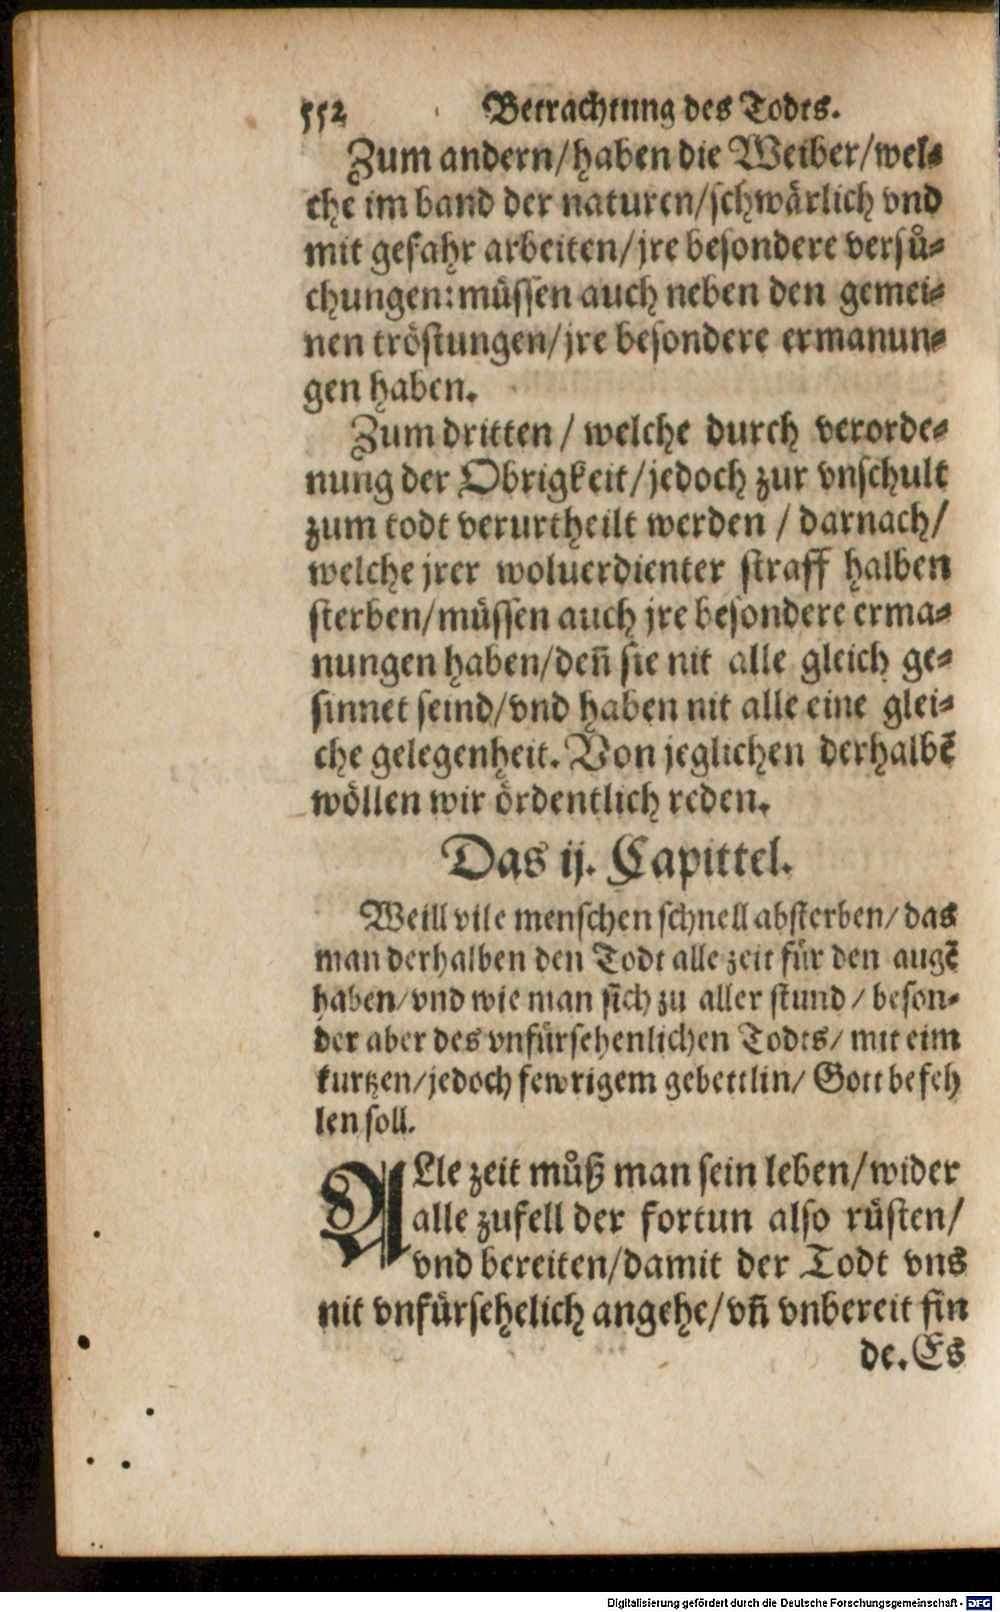 552 Betrachtung des Todts.
Zum andern/haben die Weiber/wel-
che im band der naturen/schwärlich vnd
mit gefahr arbeiten/jre besondere versů-
chungen:müssen auch neben den gemei-
nen tröstungen/jre besondere ermanun-
gen haben.
Zum dritten / welche durch verorde-
nung der Obrigkeit/jedoch zur vnschult
zum todt verurtheilt werden / darnach/
welche jrer woluerdienter straff halben
sterben/müssen auch jre besondere erma-
nungen haben/deñ sie nit alle gleich ge-
sinnet seind/vnd haben nit alle eine glei-
che gelegenheit. Von jeglichen derhalbẽ
wöllen wir ördentlich reden.
Das ij. Capittel.
Weill vile menschen schnell absterben/ das
man derhalben den Todt alle zeit für den augẽ
haben/vnd wie man sich zu aller stund / beson-
der aber des vnfürsehenlichen Todts/ mit eim
kurtzen/jedoch fewrigem gebettlin/ Gott befeh
len soll.
ALle zeit můß man sein leben/wider
alle zufell der fortun also rüsten/
vnd bereiten/damit der Todt vns
nit vnfürsehelich angehe/vñ vnbereit fin
de. Es
Digitalisierung gefördert durch die Deutsche Forschungsgemeinschaft - DFG